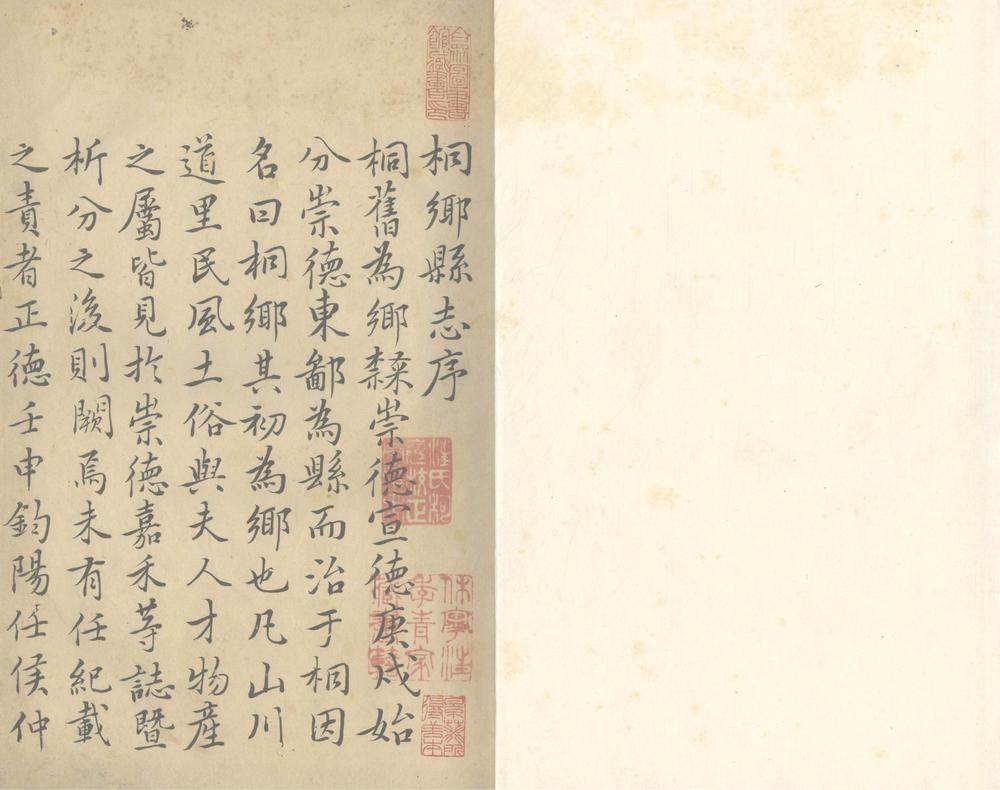 桐鄉縣志序
桐舊為鄉隸崇德宣德庚戌始
分崇德東鄙為縣而治于桐因
名曰桐鄉其初為鄉也凡山川
道里民風土俗與夫人才物產
之屬皆見於崇德嘉禾等誌暨
析分之後則闕焉未有任紀載
之責者正德壬申鈞陽任侯仲
合眾圖書館藏書印
休寧汪季青家藏書籍